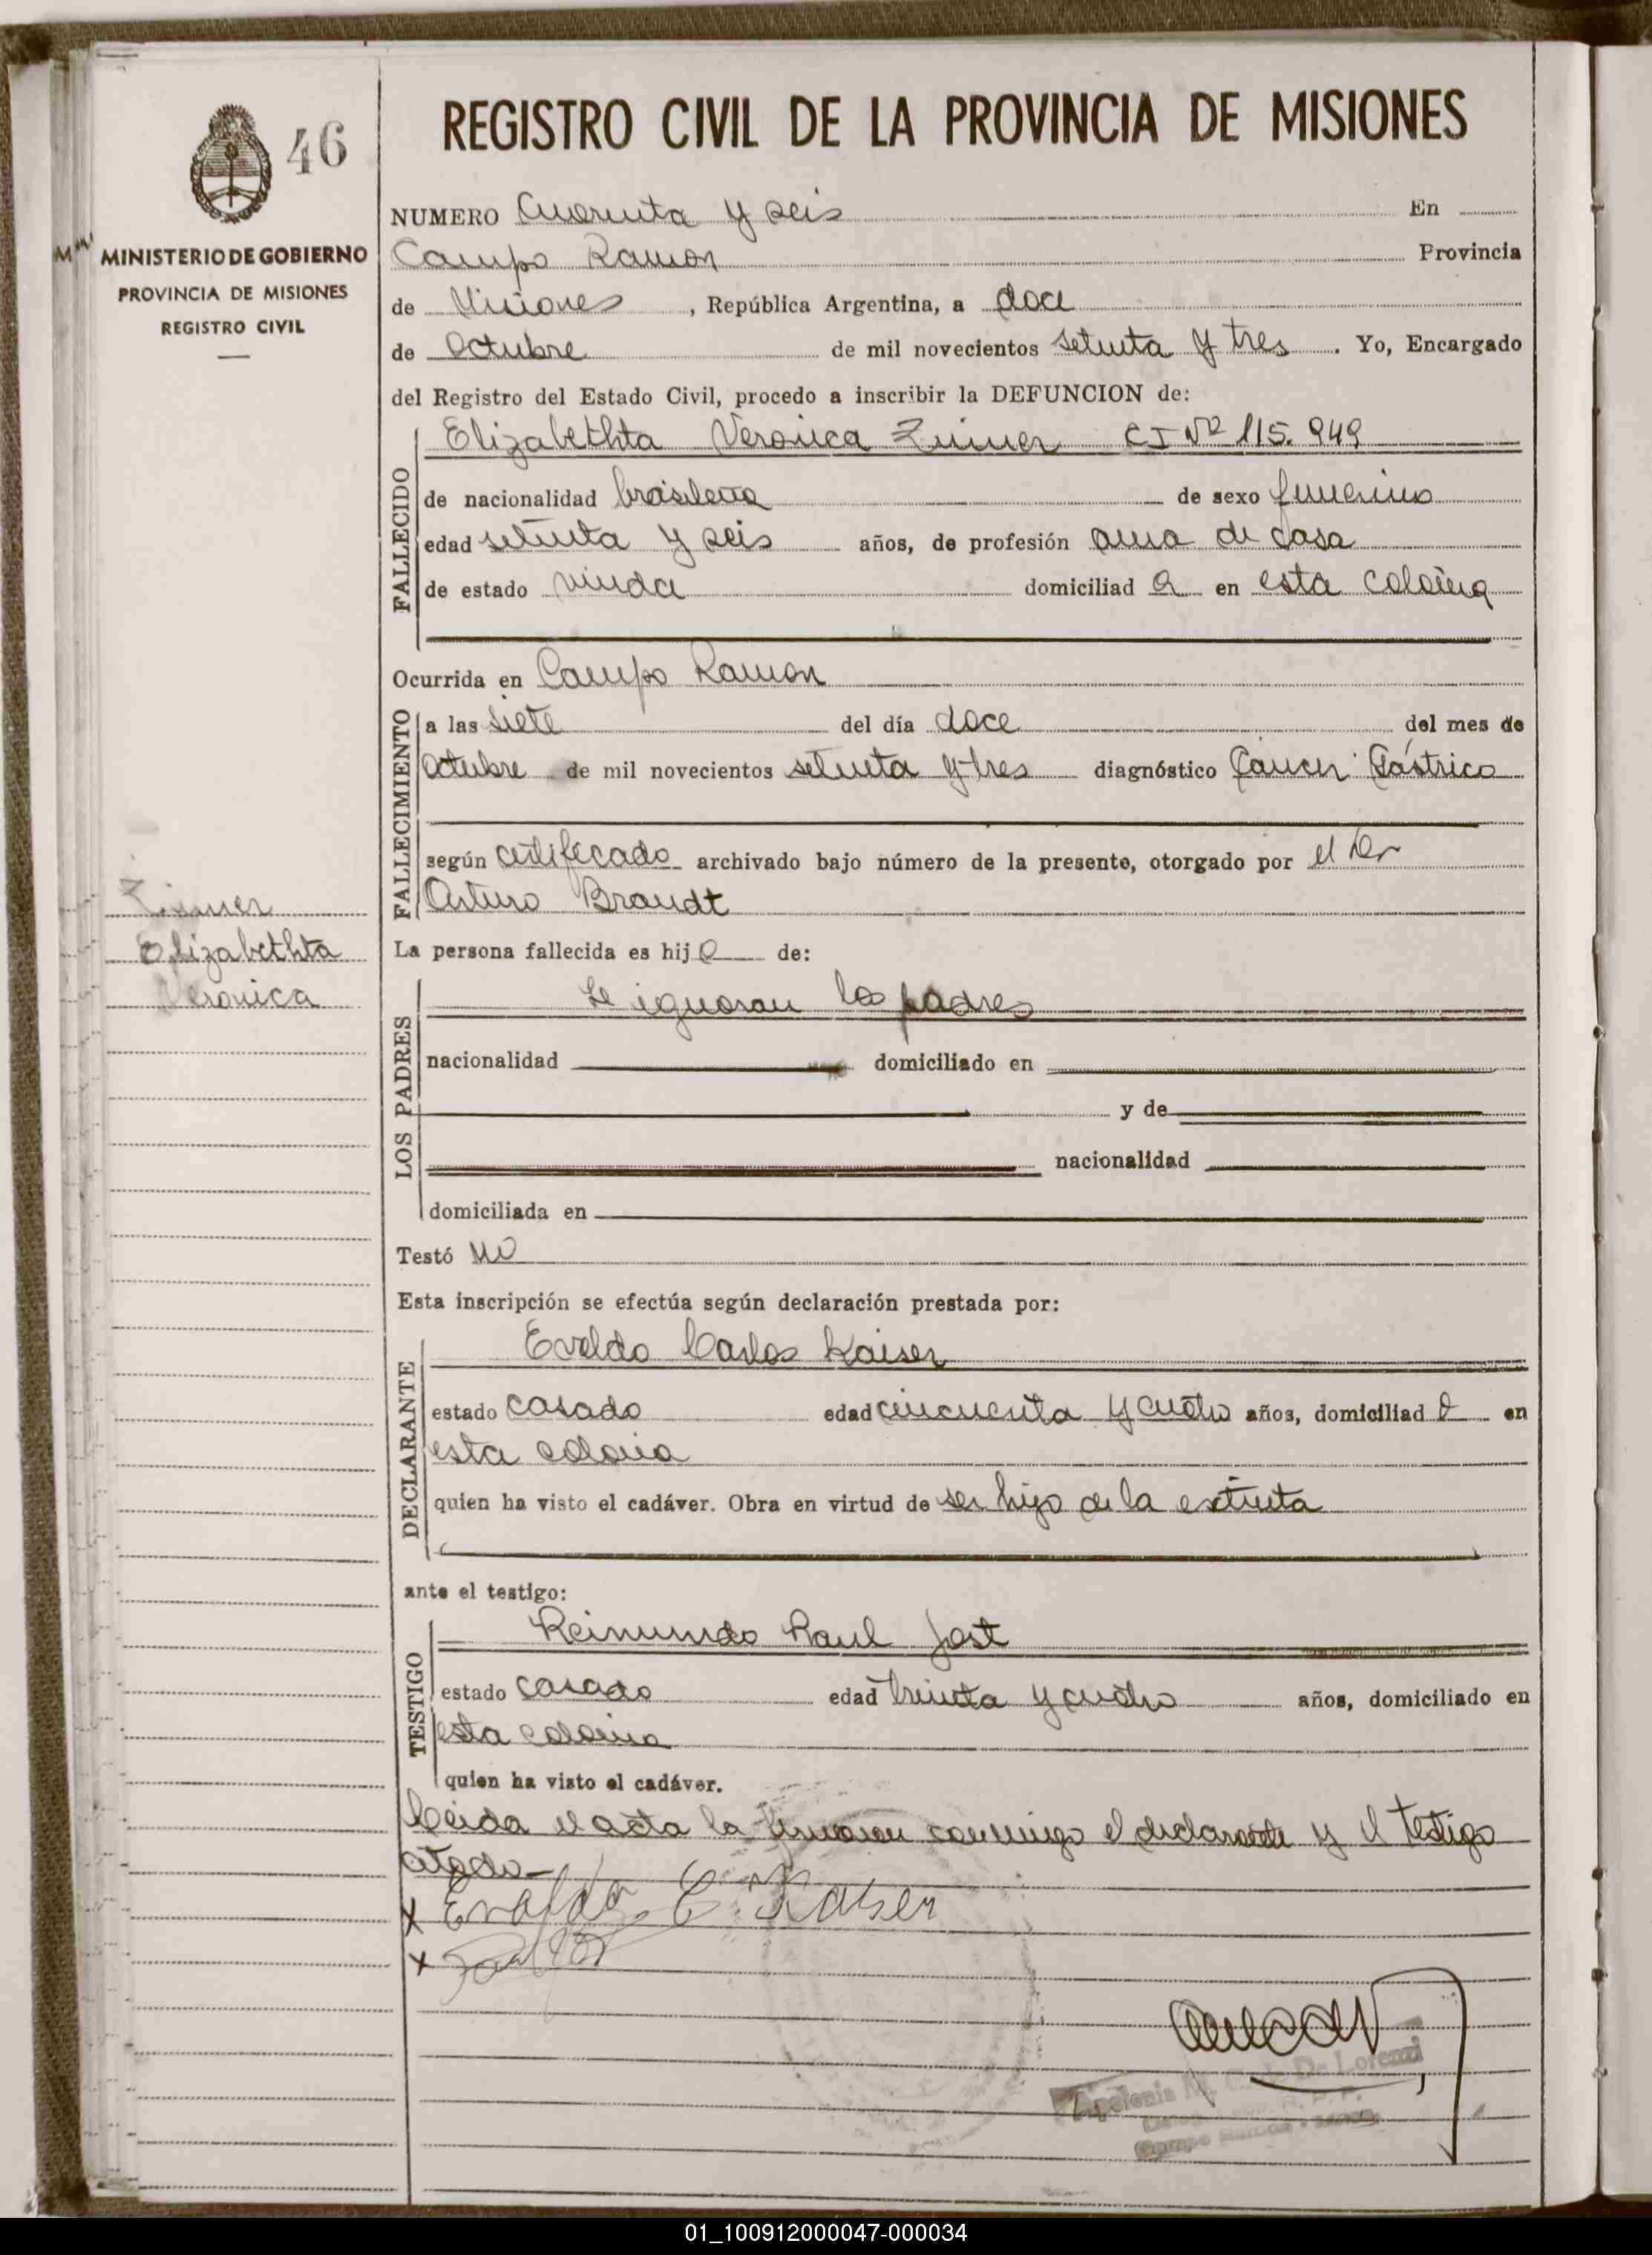 46
MINISTERIO DE GOBIERNO
PROVINCIA DE MISIONES
REGISTRO CIVIL
REGISTRO CIVIL DE LA PROVINCIA DE MISIONES
NUMERO Cuarenta y seis En
Campo Ramon Provincia
de Misiones , República Argentina, a doce
de Octubre de mil novecientos setenta y tres . Yo, Encargado
del Registro del Estado Civil, procedo a inscribir la DEFUNCION de:
FALLECIDO
Elizabethta Veronica Zimer CI Nº 115.949
de nacionalidad brasileña de sexo femenino
edad setenta y seis años, de profesión ama de casa
de estado viuda domiciliad a en esta colonia
Ocurrida en Campo Ramon
FALLECIMIENTO
a las siete del día doce del mes de
octubre de mil novecientos setenta y tres diagnóstico Cáncer Gástrico
según certificado archivado bajo número de la presente, otorgado por el Dr
Arturo Brandt
Zimer
Elizabethta
Veronica
La persona fallecida es hij a de:
LOS PADRES
Se ignoran los padres
nacionalidad domiciliado en
y de
nacionalidad
domiciliada en
Testó no
Esta inscripción se efectúa según declaración prestada por:
DECLARANTE
Evaldo Carlos Kaiser
estado casado edad cincuenta y cuatro años, domiciliad o en
esta colonia
quien ha visto el cadáver. Obra en virtud de ser hijo de la extinta
ante el testigo:
TESTIGO
Reimundo Raul Jost
estado casado edad treinta y cuatro años, domiciliado en
esta colonia
quien ha visto el cadáver.
Leida el acta la firmaron conmigo el declarante y el testigo
citado-
x Evaldo C. Kaiser
x
Apolonia De Lorenzi
Campo
01_100912000047-000034